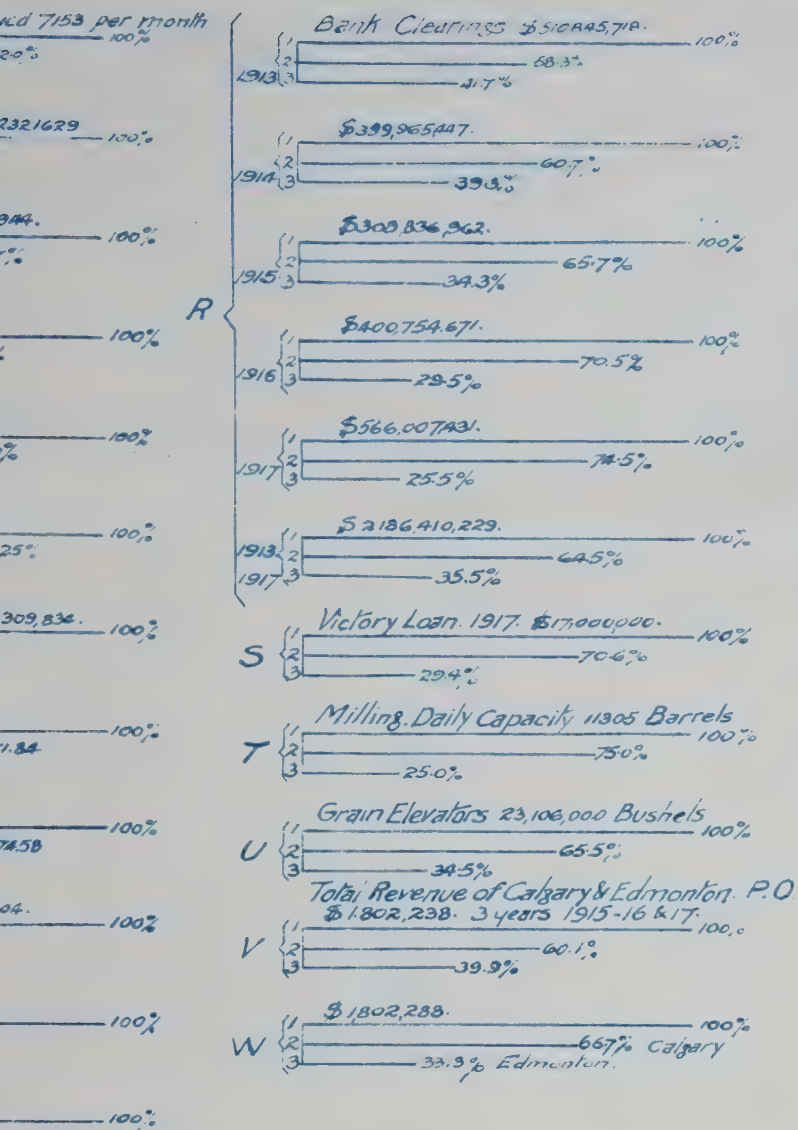 7153 per month
100%
2321629
100%
344.
100%
100%
100%
100%
25%
309,834.
100%
100%
1.84
100%
74.58
04.
100%
100%
100%
R
Bank Clearings $510,845,718.
1913
1 100%
2 58.3%
3 41.7%
$399,965,447.
1914
1 100%
2 60.7%
3 39.3%
$309,836,962.
1915
1 100%
2 65.7%
3 34.3%
$400,754,671.
1916
1 100%
2 70.5%
3 29.5%
$566,007,431.
1917
1 100%
2 74.5%
3 25.5%
$2186,410,229.
1913
1917
1 100%
2 64.5%
3 35.5%
S
Victory Loan 1917. $17,000,000.
1 100%
2 70.6%
3 29.4%
T
Milling Daily Capacity 11305 Barrels
1 100%
2 75.0%
3 25.0%
U
Grain Elevators 23,106,000 Bushels
1 100%
2 65.5%
3 34.5%
Total Revenue of Calgary & Edmonton P.O.
$1,802,238. 3 years 1915-16 & 17.
V
1 100%
2 60.1%
3 39.9%
$1,802,288.
W
1 100%
2 66.7% Calgary
3 33.3% Edmonton.